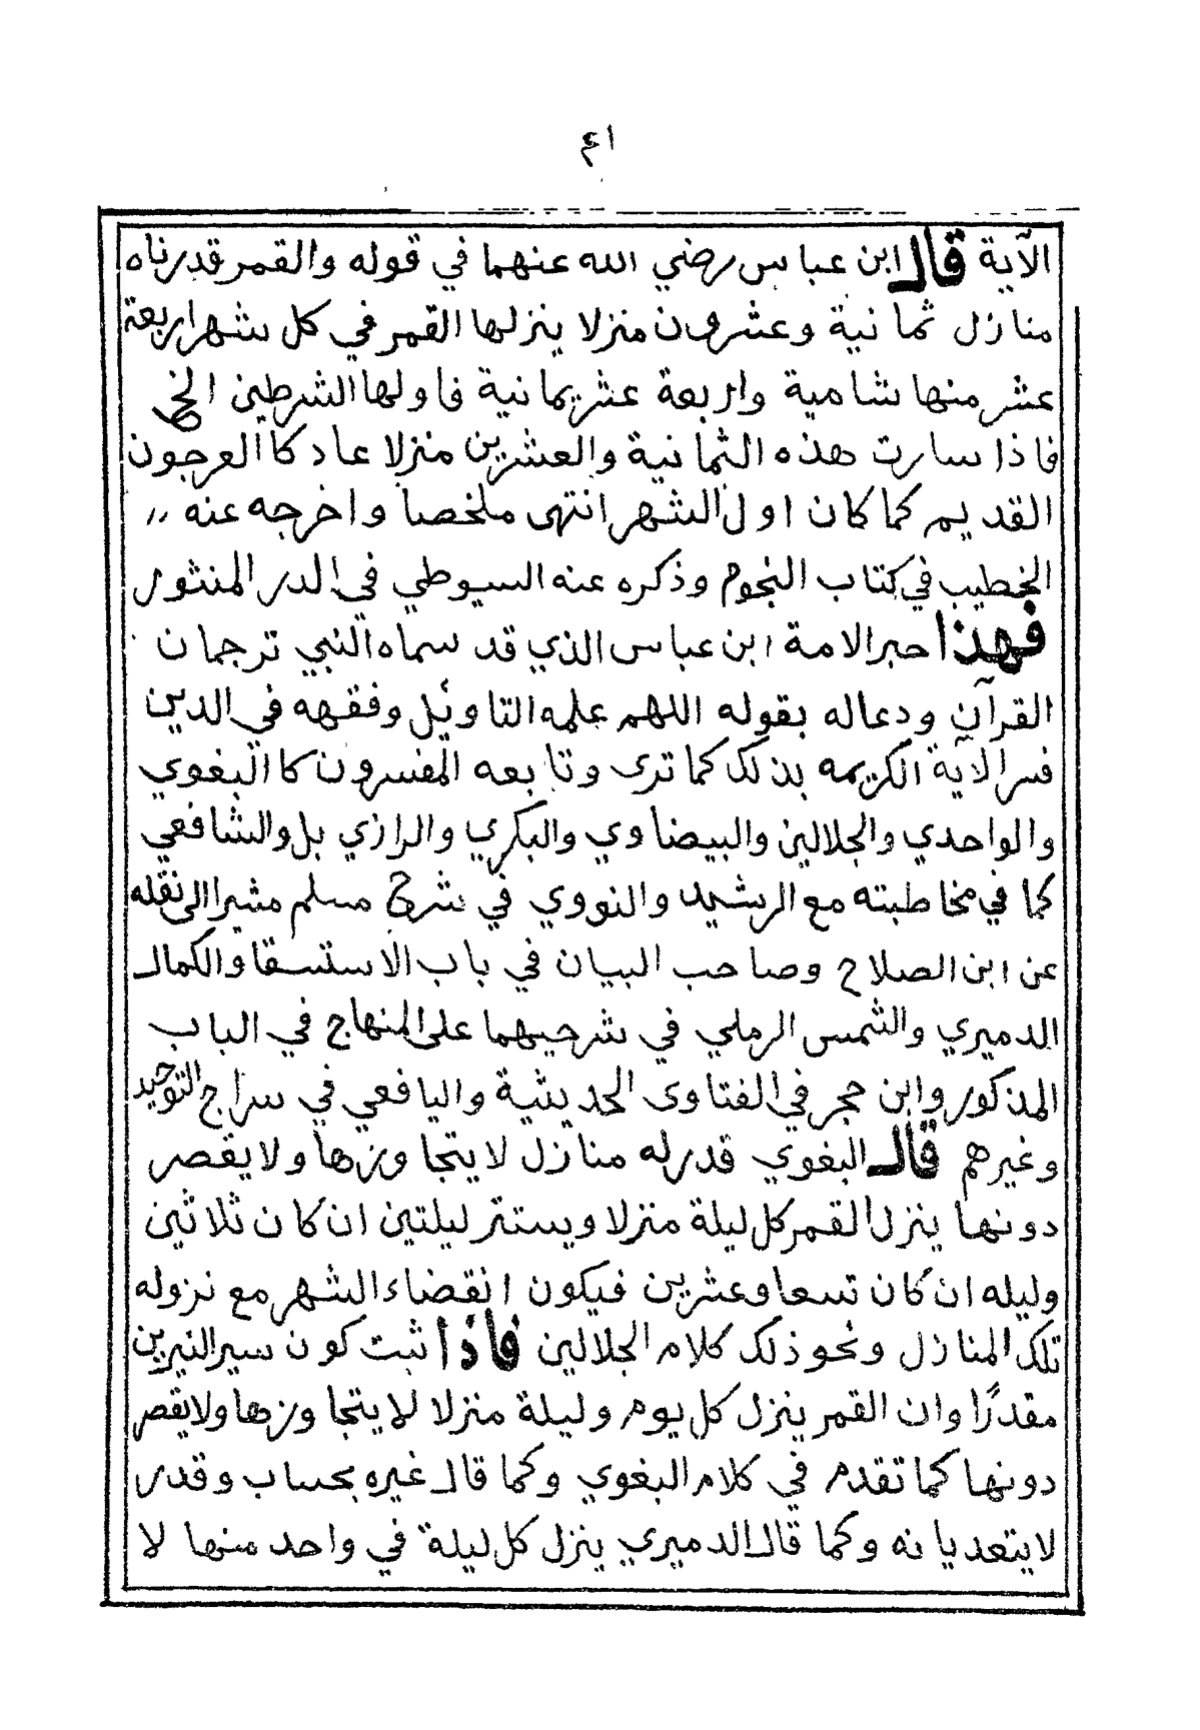 ٤١
الآية قال ابن عباس رضي الله عنهما في قوله والقمر قدرناه
منازل ثمانية وعشرون منزلا ينزلها القمر في كل شهر اربعة
عشر منها شامية واربعة عشر يمانية فاولها الشرطين الخ
فاذا سارت هذه الثمانية والعشرين منزلا عاد كالعرجون
القديم كما كان اول الشهر انتهى ملخصا واخرجه عنه ،،
الخطيب في كتاب النجوم وذكره عنه السيوطي في الدر المنثور
فهذا حبر الامة ابن عباس الذي قد سماه النبي ترجمان
القرآن ودعاله بقوله اللهم علمه التاويل وفقهه في الدين
فسر الآية الكريمه بذلك كما ترى وتابعه المفسرون كالبغوي
والواحدي والجلالين والبيضاوي والبكري والرازي بل والشافعي
كما في مخاطبته مع الرشيد والنووي في شرح مسلم مشيرا الى نقله
عن ابن الصلاح وصاحب البيان في باب الاستسقا والكمال
الدميري والشمس الرملي في شرحيهما على المنهاج في الباب
المذكور وابن حجر في الفتاوى الحديثية واليافعي في سراج التوحيد
وغيرهم قال البغوي قدر له منازل لا يتجاوزها ولا يقصر
دونها ينزل القمر كل ليلة منزلا ويستتر ليلتين ان كان ثلاثين
وليله ان كان تسعا وعشرين فيكون انقضاء الشهر مع نزوله
تلك المنازل ونحو ذلك كلام الجلالين فاذا ثبت كون سير النيرين
مقدرًا وان القمر ينزل كل يوم وليلة منزلا لا يتجاوزها ولا يقصر
دونها كما تقدم في كلام البغوي وكما قال غيره بحساب وقدر
لا يتعديانه وكما قال الدميري ينزل كل ليلة في واحد منها لا